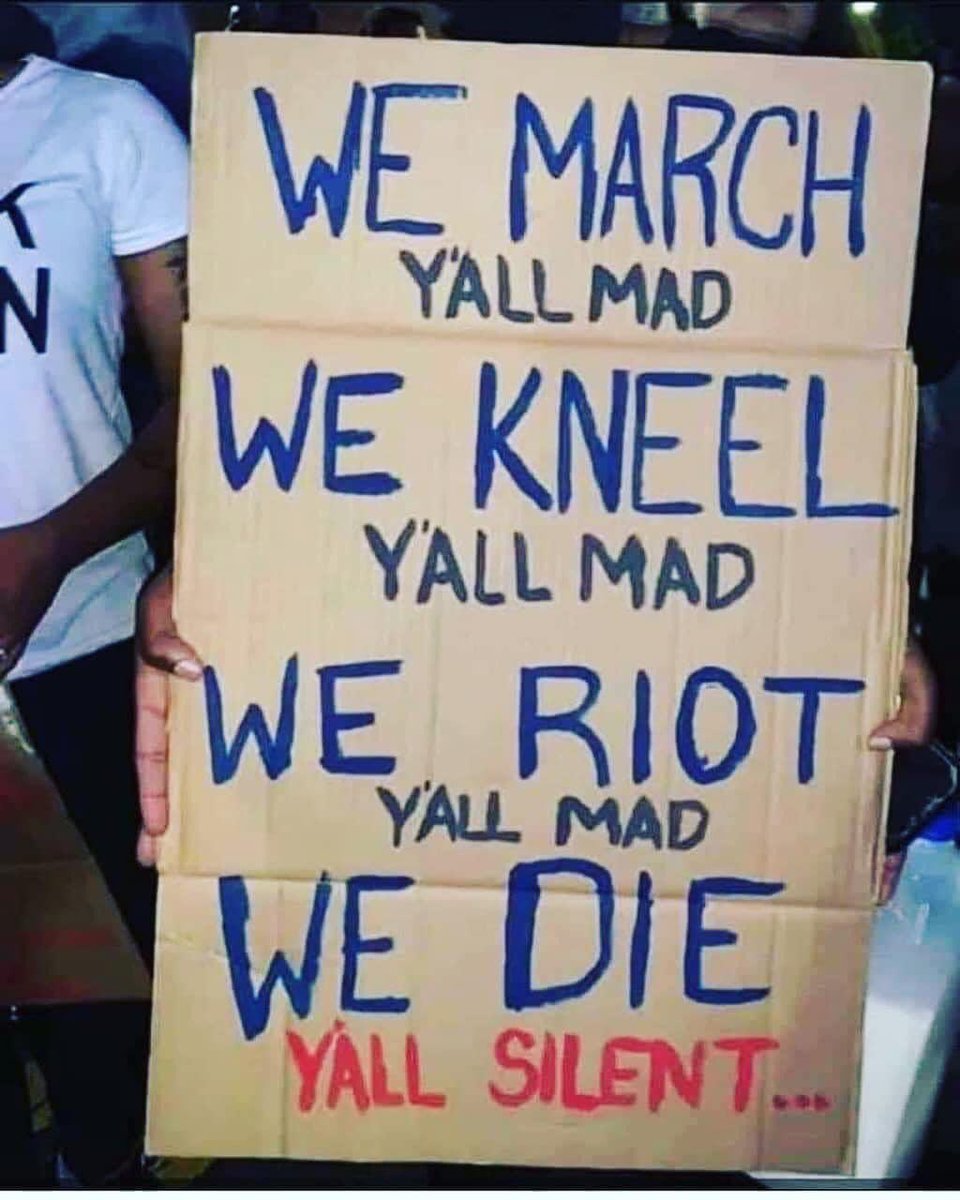 WE MARCH
Y'ALL MAD
WE KNEEL
Y'ALL MAD
WE RIOT
Y'ALL MAD
WE DIE
Y'ALL SILENT...